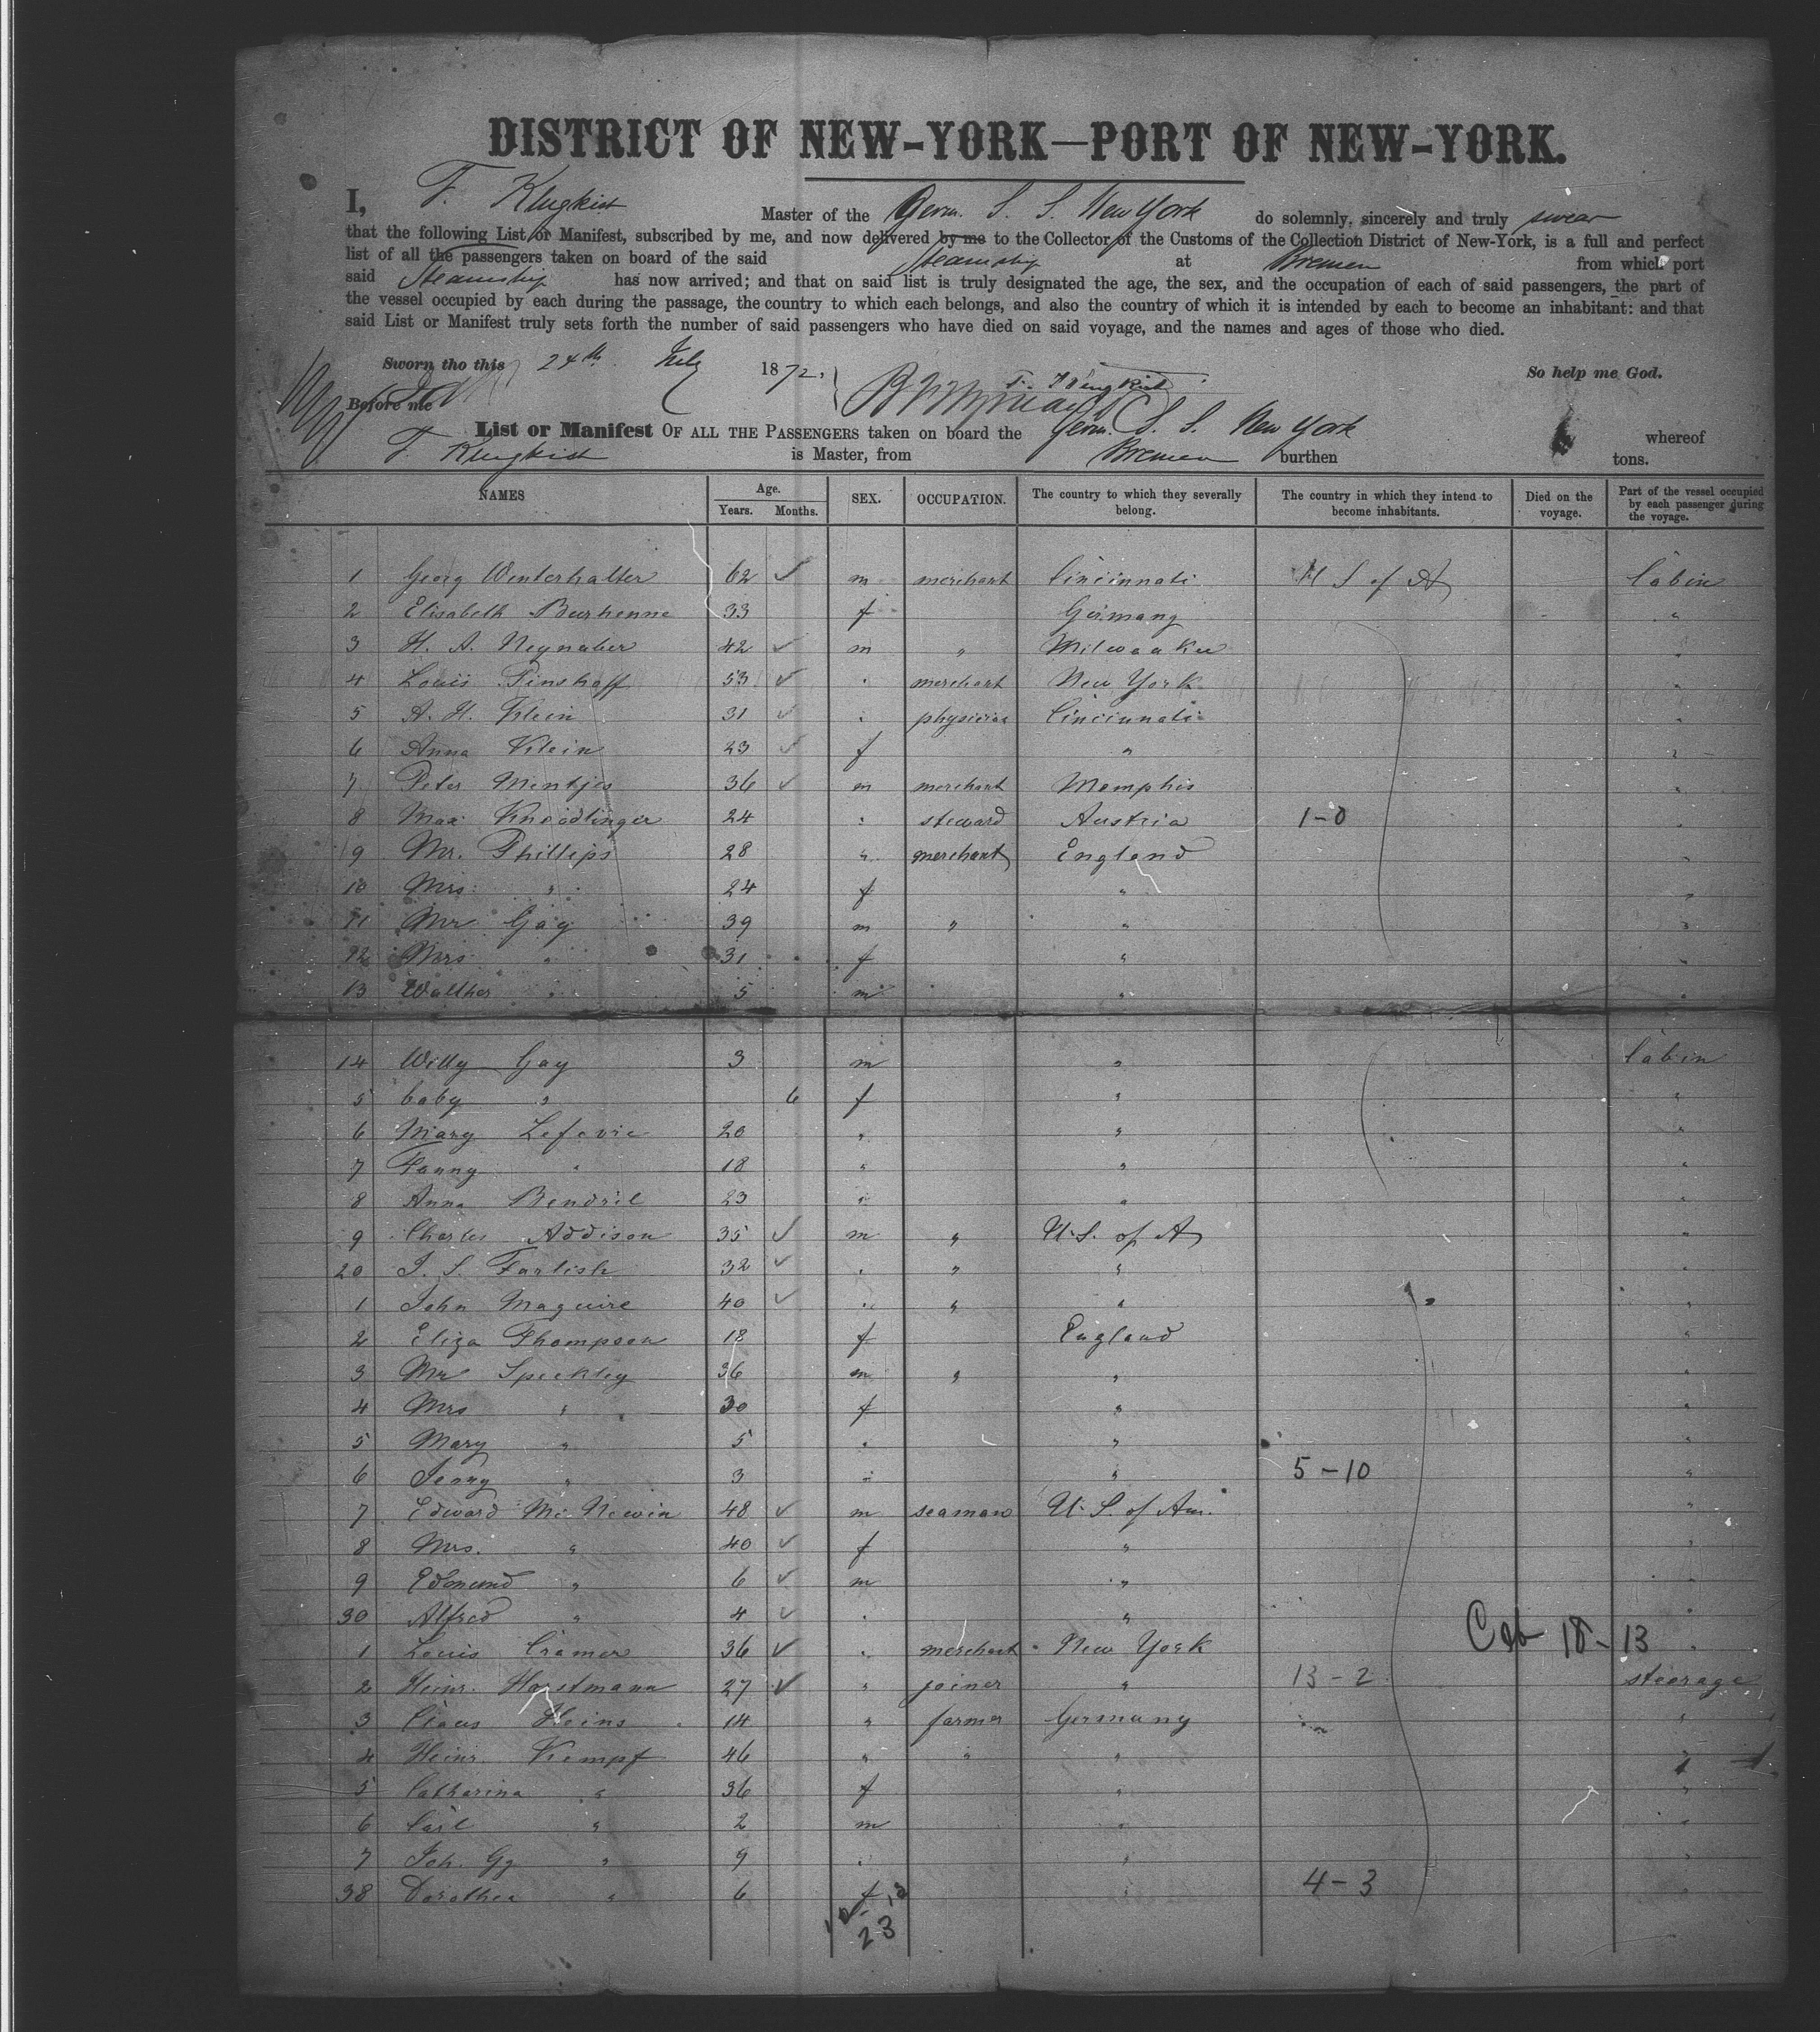 DISTRICT OF NEW-YORK—PORT OF NEW-YORK.
I, F. Klugkist Master of the Germ. S. S. New York do solemnly, sincerely and truly swear
that the following List or Manifest, subscribed by me, and now delivered by me to the Collector of the Customs of the Collection District of New-York, is a full and perfect
list of all the passengers taken on board of the said Steamship at Bremen from which port
said Steamship has now arrived; and that on said list is truly designated the age, the sex, and the occupation of each of said passengers, the part of
the vessel occupied by each during the passage, the country to which each belongs, and also the country of which it is intended by each to become an inhabitant: and that
said List or Manifest truly sets forth the number of said passengers who have died on said voyage, and the names and ages of those who died.
Sworn tho this 24th July 1872, F. Klugkist So help me God.
Before me
List or Manifest OF ALL THE PASSENGERS taken on board the Germ. S. S. New York whereof
F. Klugkist is Master, from Bremen burthen tons.
NAMES Age. Years. Months. SEX. OCCUPATION. The country to which they severally belong. The country in which they intend to become inhabitants. Died on the voyage. Part of the vessel occupied by each passenger during the voyage.
1 Georg Winterhalter 62 ✓ m merchant Cincinnati U S of A Cabin
2 Elisabeth Burhenne 33 f Germany "
3 H. A. Neynaber 42 ✓ m " Milwaukee "
4 Louis Pinshoff 53 ✓ " merchant New York "
5 A. H. Klein 31 ✓ " physician Cincinnati "
6 Anna Klein 23 ✓ f " "
7 Peter Mintjes 36 ✓ m merchant Memphis "
8 Max Kneidlinger 24 " steward Austria 1-0 "
9 Mr. Phillips 28 " merchant England "
10 Mrs. " 24 f " "
11 Mr Gay 39 m " " "
12 Mrs " 31 f " "
13 Walther " 5 m " "
14 Willy Gay 3 m " Cabin
5 baby " 6 f " "
6 Mary Lefevie 20 " " "
7 Fanny " 18 " " "
8 Anna Bendril 23 " " "
9 Charles Addison 35 ✓ m " U.S. of A "
20 J. S. Farlish 32 ✓ " " " "
1 John Maguire 40 ✓ " " " "
2 Eliza Thompson 18 f England "
3 Mr Speckley 36 m " " "
4 Mrs " 30 f " "
5 Mary " 5 " " "
6 Jenny " 3 " " 5-10 "
7 Edward Mc Newin 48 ✓ m seaman U.S. of Am. "
8 Mrs. " 40 ✓ f " "
9 Edmund " 6 ✓ m " "
30 Alfred " 4 ✓ " " "
1 Louis Cramer 36 ✓ " merchant New York Cab 18-13 "
2 Heinr. Horstmann 27 ✓ " joiner " 13-2 steerage
3 Claus Heins 14 " farmer Germany "
4 Heinr. Kempf 46 " " " "
5 Catharina " 36 f " "
6 Carl " 2 m " "
7 Joh. Gg " 9 " " "
38 Dorothea " 6 f " 4-3 "
23